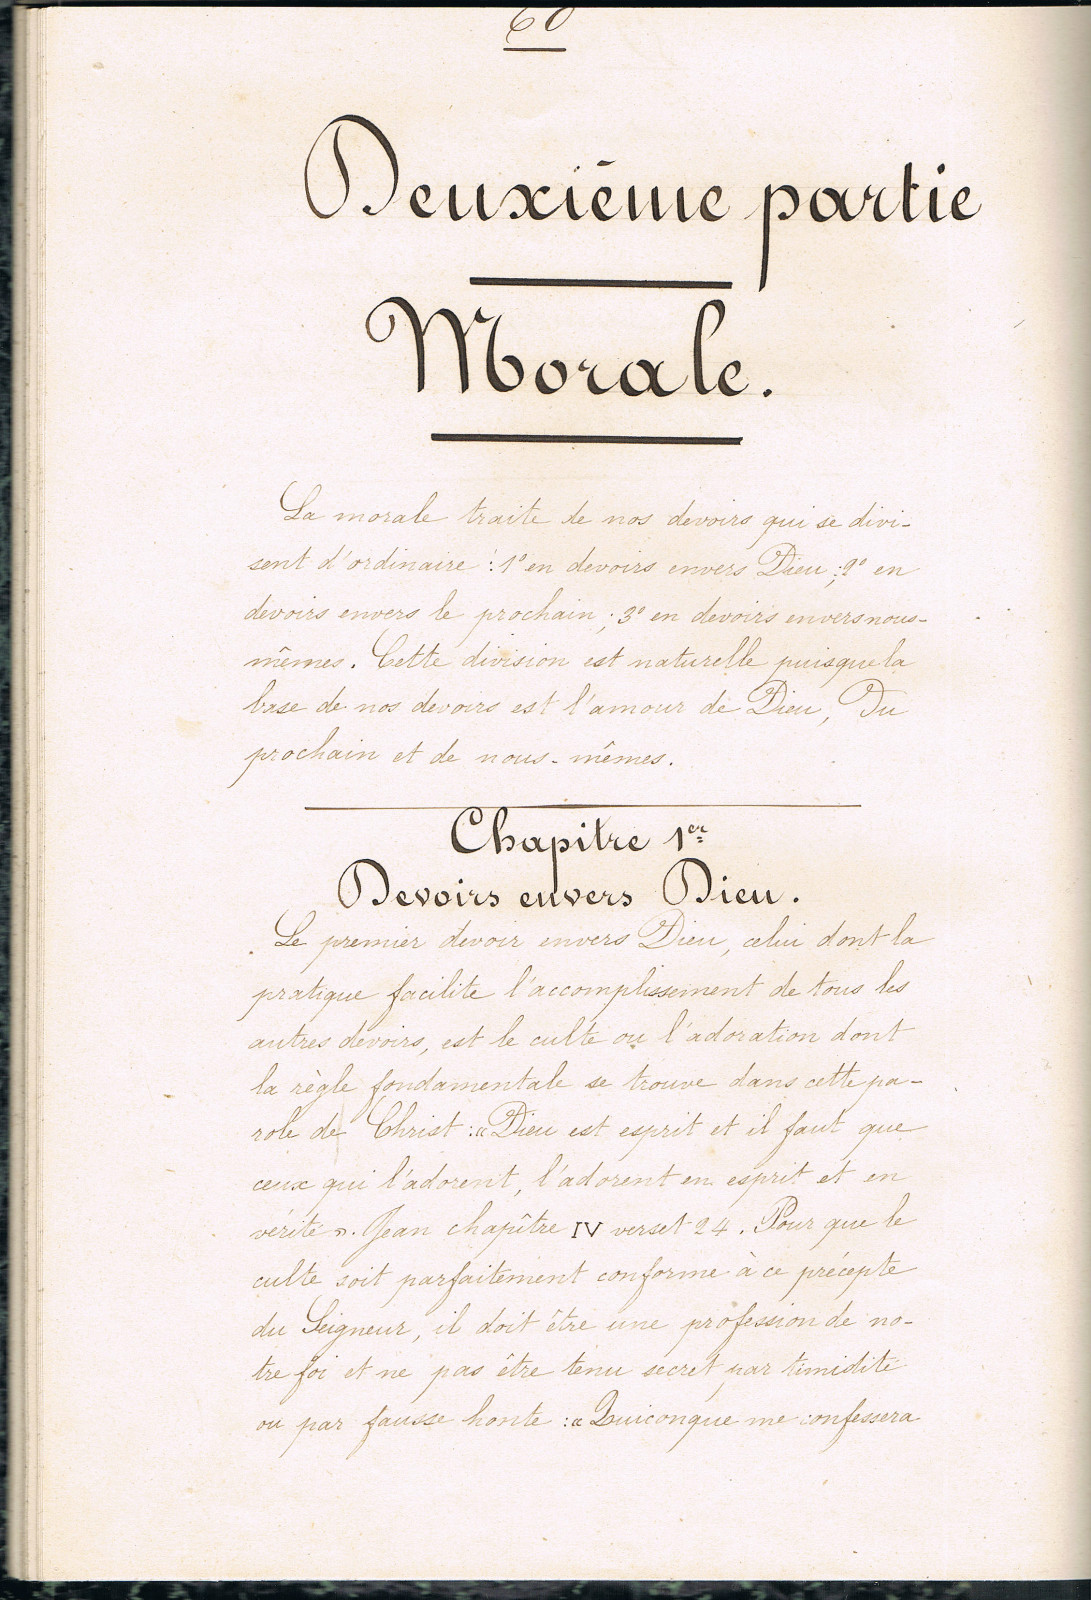 60
Deuxième partie
Morale.
La morale traite de nos devoirs qui se divi-
sent d'ordinaire : 1° en devoirs envers Dieu ; 2° en
devoirs envers le prochain ; 3° en devoirs envers nous-
mêmes. Cette division est naturelle puisque la
base de nos devoirs est l'amour de Dieu, Du
prochain et de nous-mêmes.
Chapitre 1er
Devoirs envers Dieu.
Le premier devoir envers Dieu, celui dont la
pratique facilite l'accomplissement de tous les
autres devoirs, est le culte ou l'adoration dont
la règle fondamentale se trouve dans cette pa-
role de Christ : « Dieu est esprit et il faut que
ceux qui l'adorent, l'adorent en esprit et en
vérité ». Jean chapître IV verset 24. Pour que le
culte soit parfaitement conforme à ce précepte
du Seigneur, il doit être une profession de no-
tre foi et ne pas être tenu secret par timidité
ou par fausse honte : « Quiconque me confessera